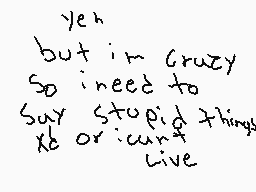 yeh
but im cruzy
so i need to
suy stupid things
xd or i cunt
live